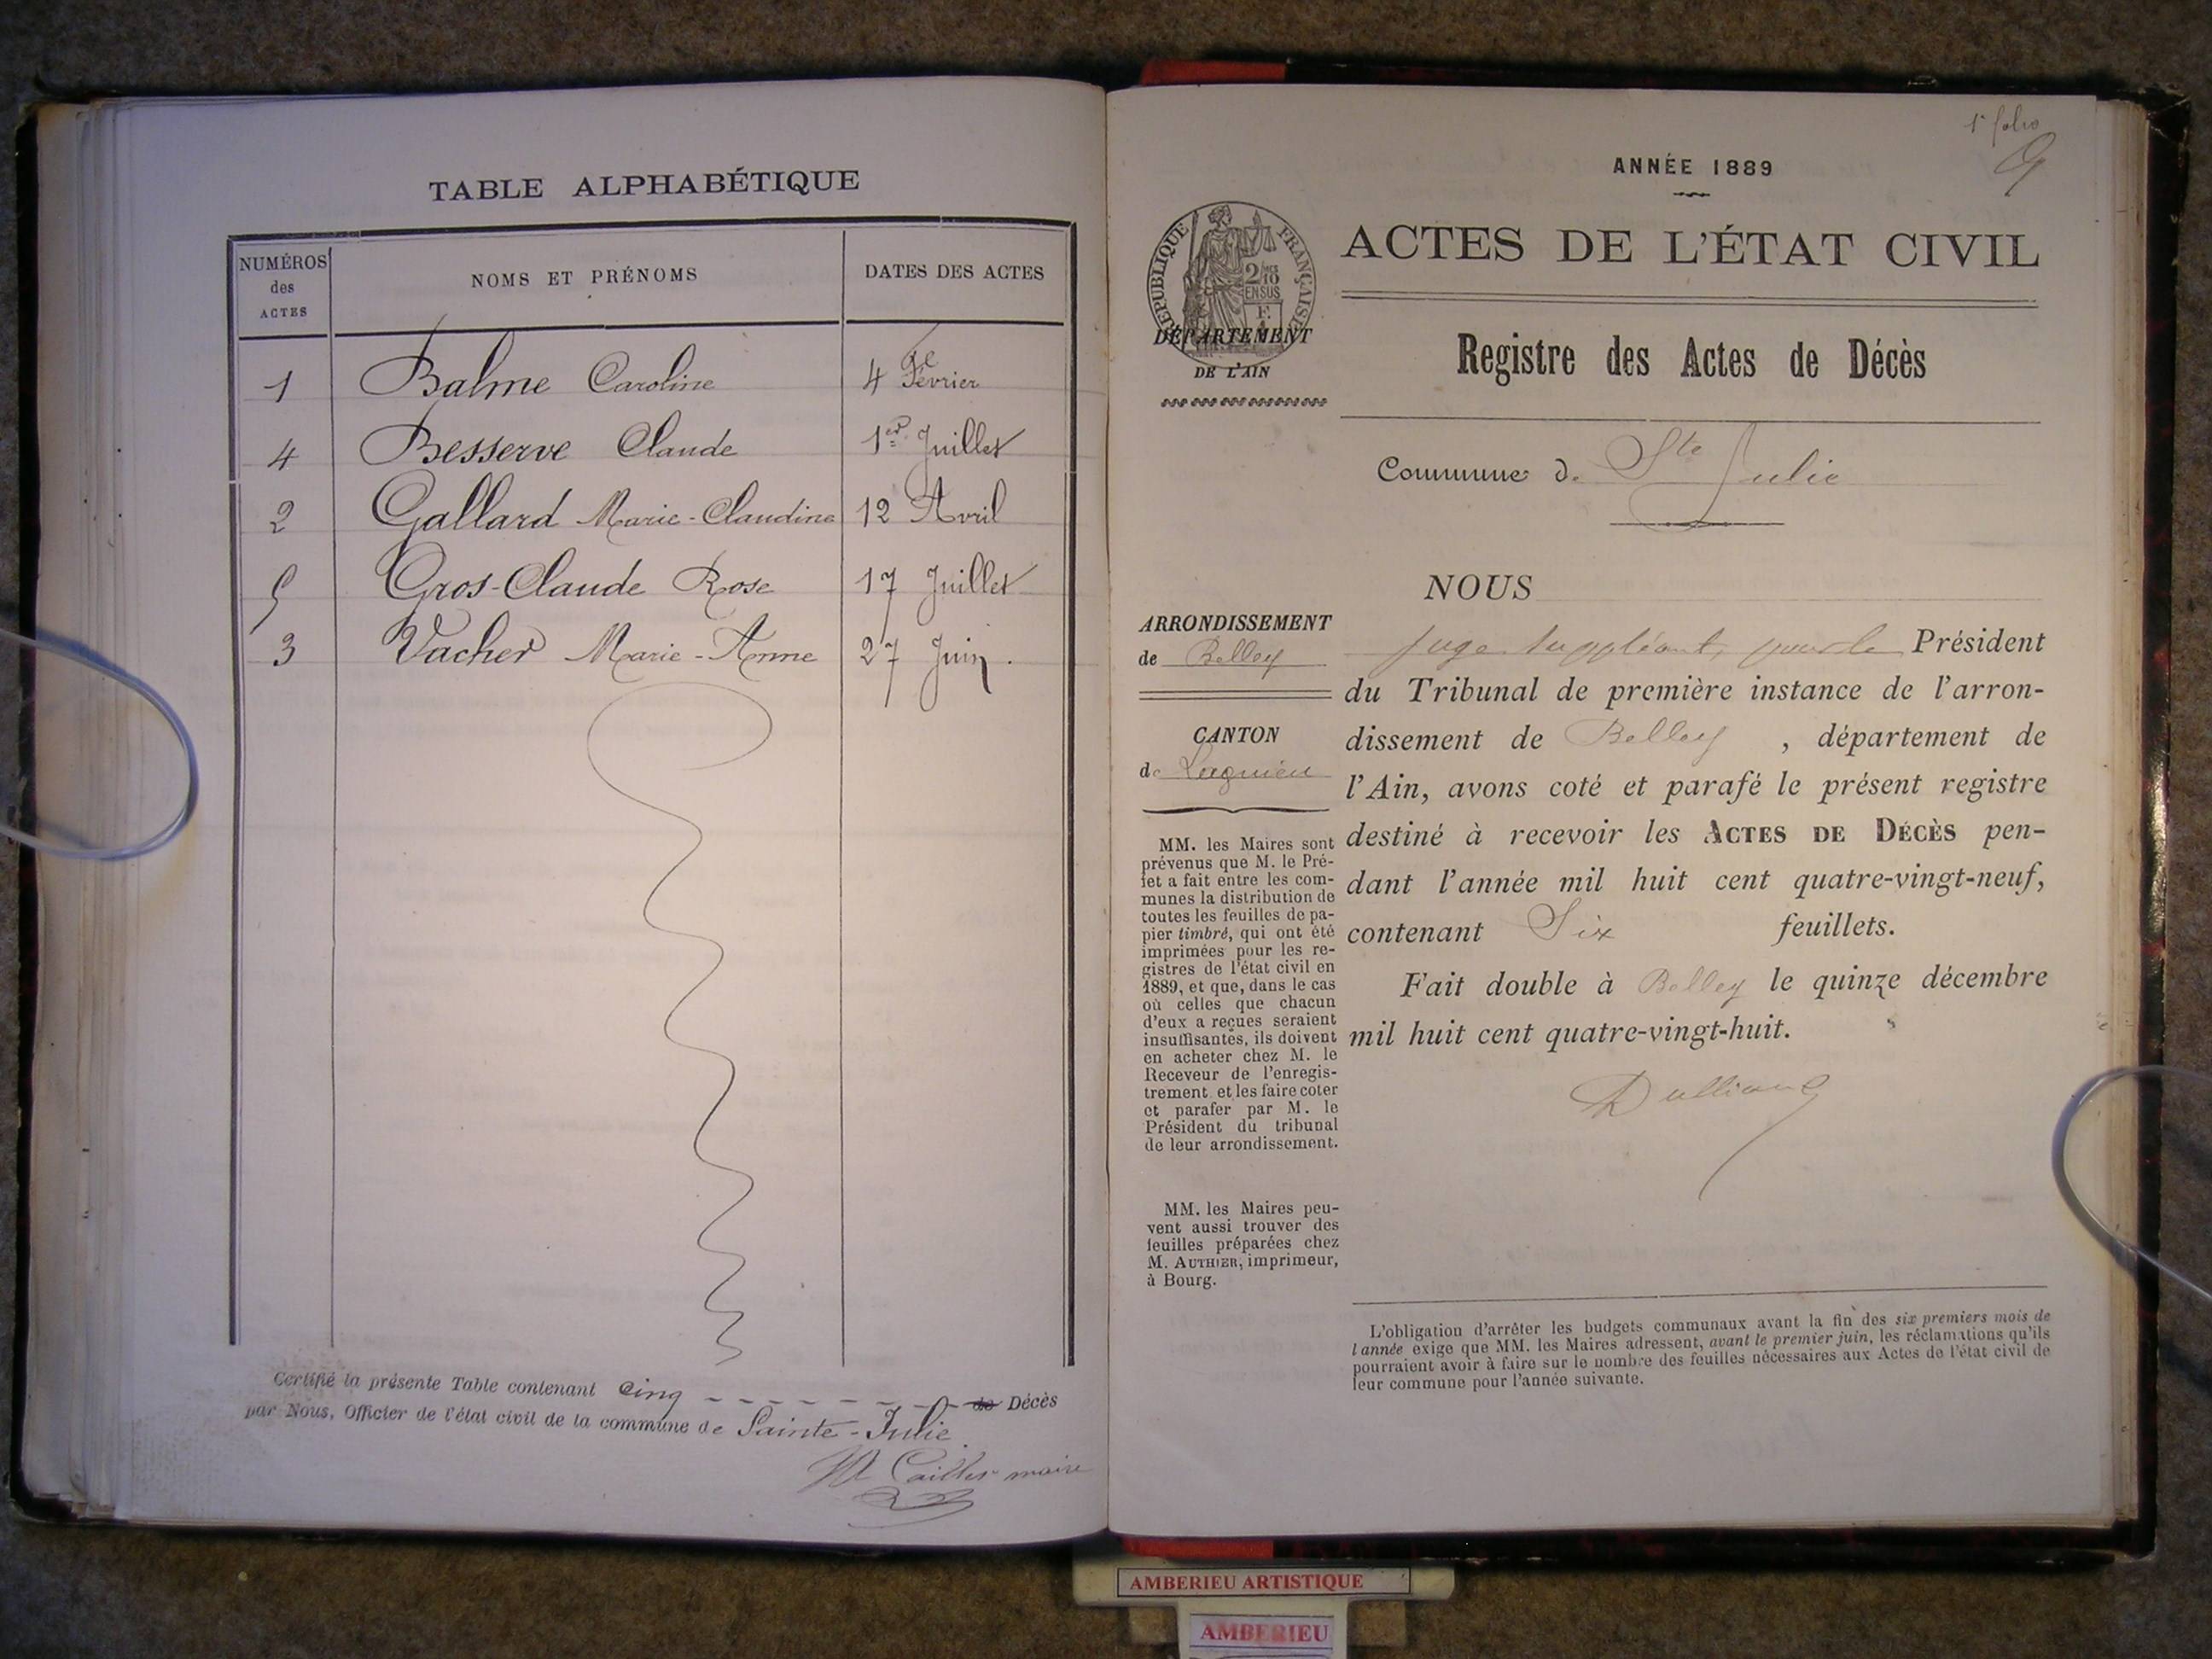 TABLE ALPHABÉTIQUE
NUMÉROS des ACTES
NOMS ET PRÉNOMS
DATES DES ACTES
1 Balme Caroline 4 Février
4 Besserve Claude 1er Juillet
2 Gallard Marie-Claudine 12 Avril
5 Gros-Claude Rose 17 Juillet
3 Vacher Marie-Anne 27 Juin.
Certifié la présente Table contenant cinq de Décès
par Nous, Officier de l'état civil de la commune de Sainte-Julie
maire
1er folio
ANNÉE 1889
RÉPUBLIQUE FRANÇAISE
2/10 EN SUS
ACTES DE L'ÉTAT CIVIL
DÉPARTEMENT
DE L'AIN
Registre des Actes de Décès
Commune de Ste Julie
ARRONDISSEMENT
de Belley
CANTON
de Lagnieu
MM. les Maires sont
prévenus que M. le Pré-
fet a fait entre les com-
munes la distribution de
toutes les feuilles de pa-
pier timbré, qui ont été
imprimées pour les re-
gistres de l'état civil en
1889, et que, dans le cas
où celles que chacun
d'eux a reçues seraient
insuffisantes, ils doivent
en acheter chez M. le
Receveur de l'enregis-
trement et les faire coter
et parafer par M. le
Président du tribunal
de leur arrondissement.
MM. les Maires peu-
vent aussi trouver des
feuilles préparées chez
M. AUTHIER, imprimeur,
à Bourg.
NOUS
juge suppléant, pour le Président
du Tribunal de première instance de l'arron-
dissement de Belley, département de
l'Ain, avons coté et parafé le présent registre
destiné à recevoir les ACTES DE DÉCÈS pen-
dant l'année mil huit cent quatre-vingt-neuf,
contenant Six feuillets.
Fait double à Belley le quinze décembre
mil huit cent quatre-vingt-huit.
L'obligation d'arrêter les budgets communaux avant la fin des six premiers mois de
l'année exige que MM. les Maires adressent, avant le premier juin, les réclamations qu'ils
pourraient avoir à faire sur le nombre des feuilles nécessaires aux Actes de l'état civil de
leur commune pour l'année suivante.
AMBERIEU ARTISTIQUE
AMBERIEU